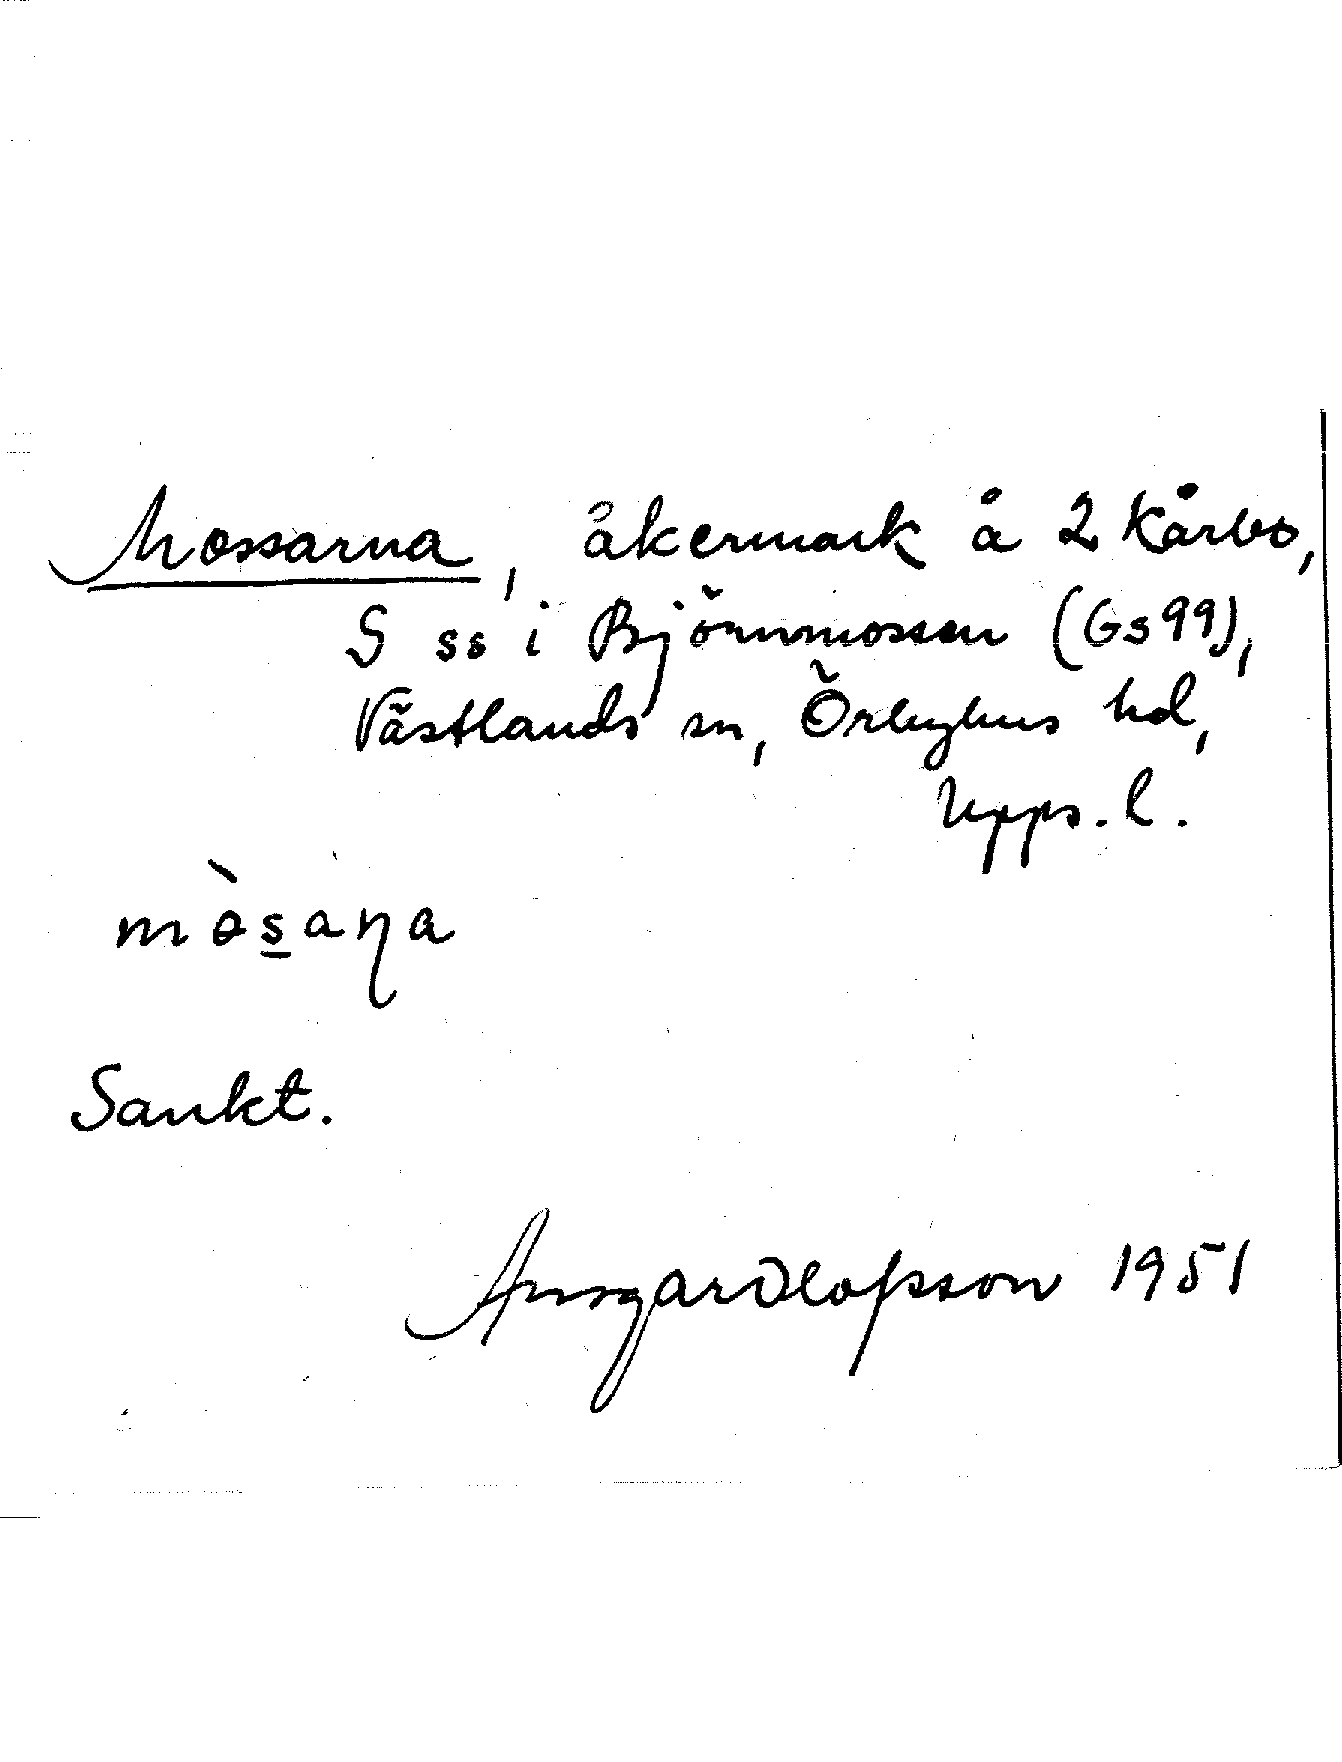 Mossarna, åkermark å 2 Kårbo,
S ss i Björnmossen (Gs 99),
Västlands sn, Örbyhus hd,
Upps. l.
mòs̲aɳa
Sankt.
Ansgar Olofsson 1951